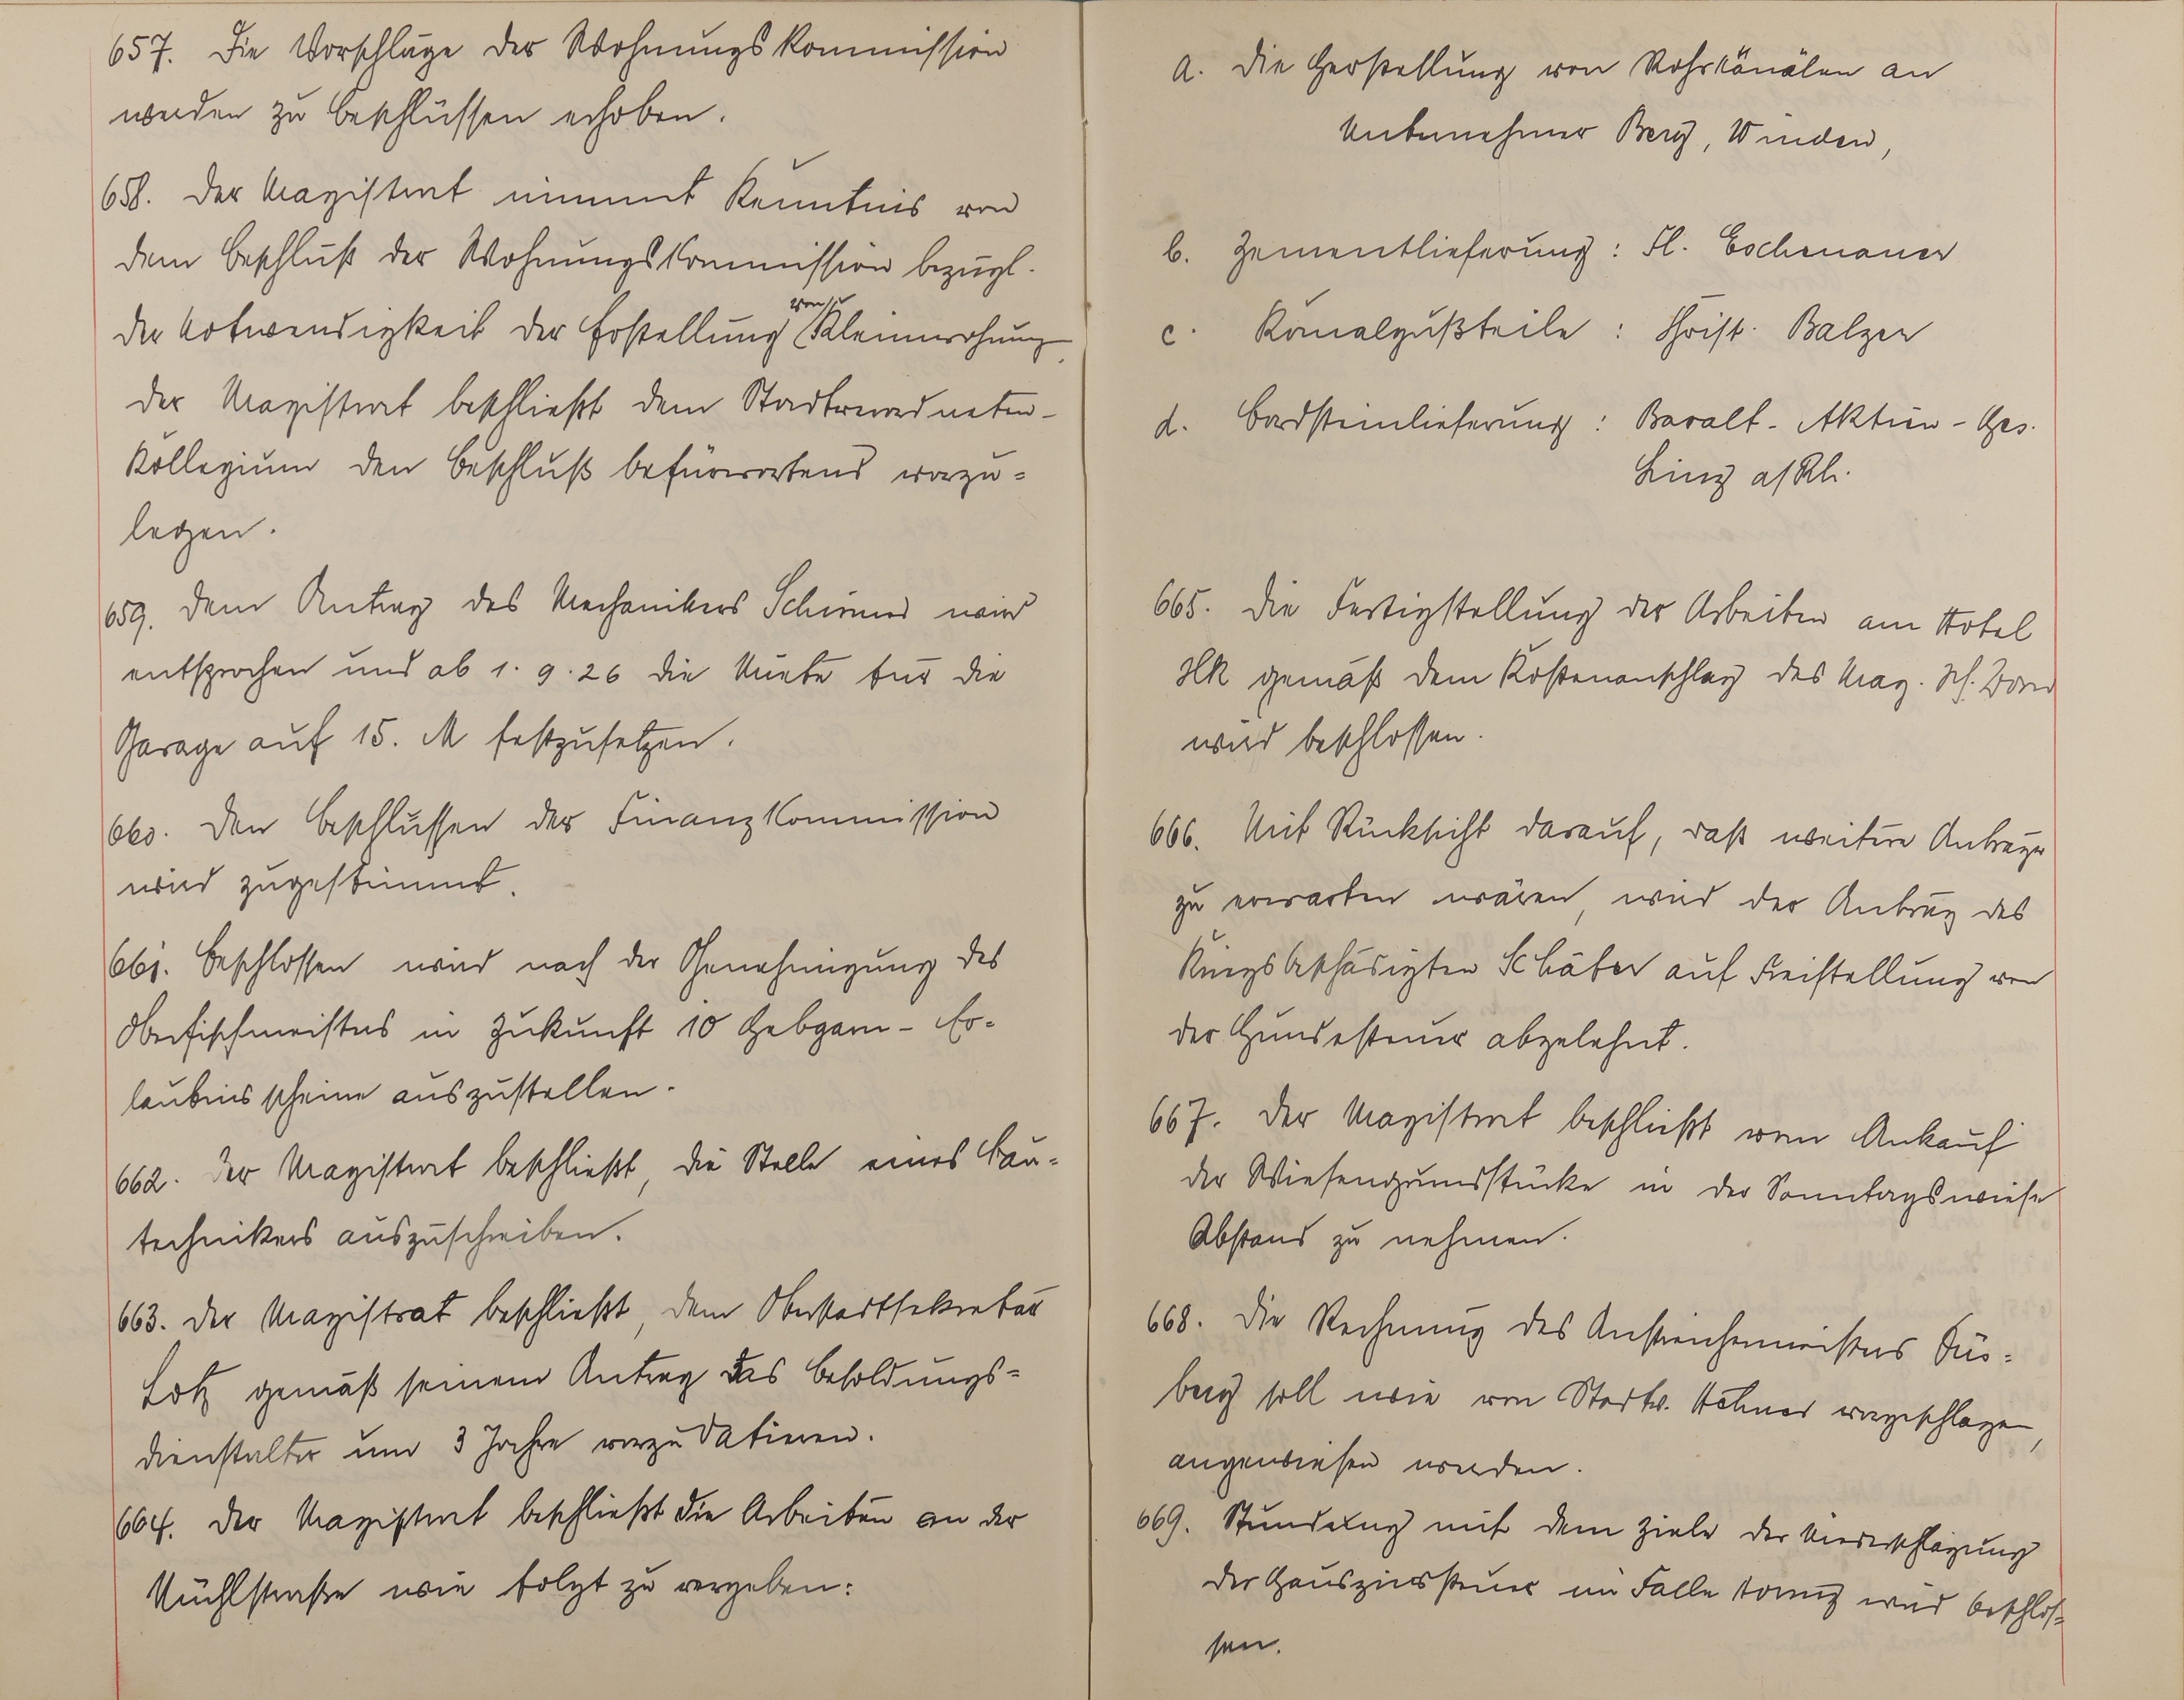 657. Die Vorschläge der Wohnungskommission
werden zu Beschlüssen erhoben.
658. Der Magistrat nimmt Kenntnis von
dem Beschluß der Wohnungskommission bezügl.
der Notwendigkeit der Erstellung von Kleinwohnung.
Der Magistrat beschließt dem Stadtverordneten-
Kollegium den Beschluß befürwortend vorzu=
legen.
659. Dem Antrag des Mechanikers Schirmer wird
entsprochen und ab 1.9.26 die Miete für die
Garage auf 15. M festzusetzen.
660. Den Beschlüssen der Finanzkommission
wird zugestimmt.
661. Beschlossen wird nach der Genehmigung des
Oberfischmeisters in Zukunft 10 Hebgarn- Er=
laubnisscheine auszustellen.
662. Der Magistrat beschließt, die Stelle eines Bau=
technikers auszuschreiben.
663. Der Magistrat beschließt, dem Oberstadtsekretär
Lotz gemäß seinem Antrag das Besoldungs=
dienstalter um 3 Jahre vorzudatieren.
664. Der Magistrat beschließt die Arbeiten an der
Mühlstraße wie folgt zu vergeben:
a. Die Herstellung von Rohrkanälen an
Unternehmer Berg, Winden,
b. Zementlieferung: Fl. Eschenauer
c. Kanalgußteile: Christ. Balzer
d. Bordsteinlieferung: Basalt-Aktien-Ges.
Linz a/Rh.
665. Die Fertigstellung der Arbeiten am Hotel
gemäß dem Kostenanschlag des Mag. Sch.
wird beschlossen.
666. Mit Rücksicht darauf, daß weitere Anträge
zu erwarten wären, wird der Antrag des
Kriegsbeschädigten Schäfer auf Freistellung von
der Hundesteuer abgelehnt.
667. Der Magistrat beschließt vom Ankauf
der Wiesengrundstücke in der Sonntagswiese
Abstand zu nehmen.
668. Die Rechnung des Anstreichermeisters Düs=
berg soll wie von Stadtv. vorgeschlagen,
angewiesen werden.
669. Stundung mit dem Ziele der Niederschlagung
der Hauszinssteuer im Falle wird beschlos=
sen.